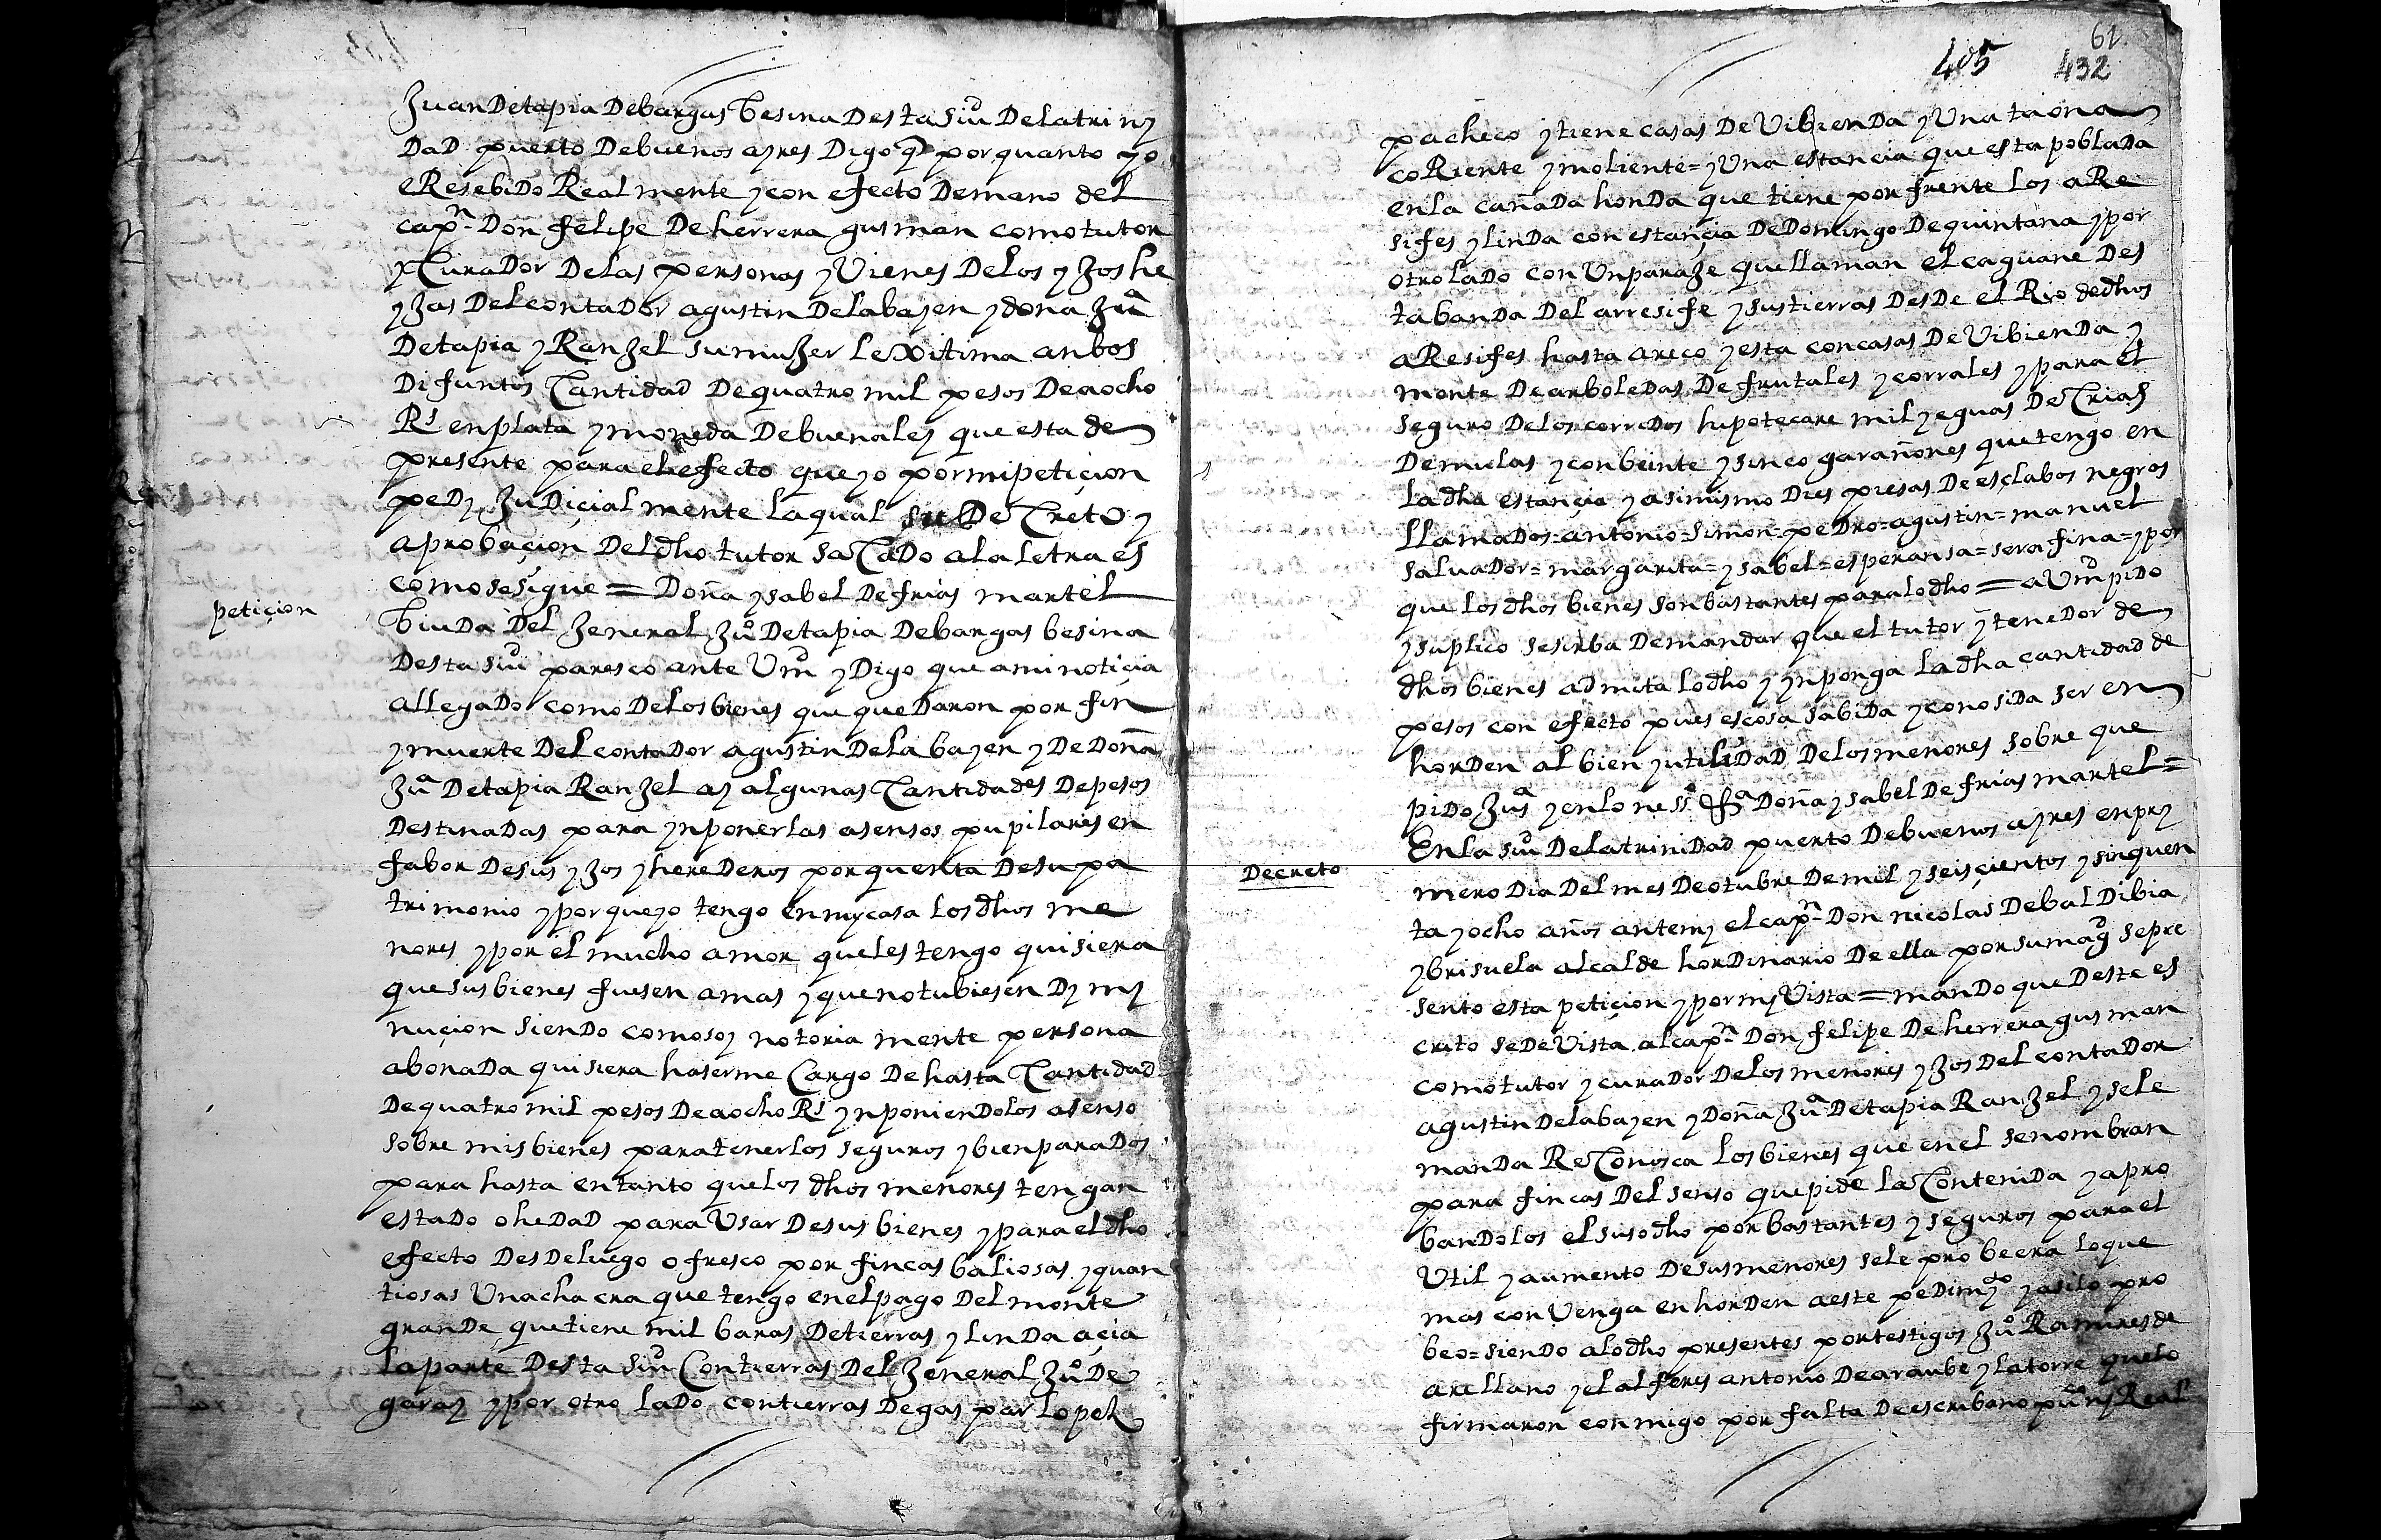 Juan De tapia De bargas besina Desta siud De la trini
DaD puerto De buenos ayres Digo q̃ por quanto yo
e Resebido Real mente y con efecto De mano del
capn Don felipe De herrera gusman como tutor
y CuraDor De las personas y Vienes De los yJos he
yJas Del contaDor agustin De labayen y dona Jua
De tapia y RanJel su muJer lexitima anbos
Difuntos Cantidad De quatro mil pesos De a ocho
Rs en plata y moneda De buena ley que esta de
presente para el efecto que yo por mi petiçion
pedy JuDiçial mente la qual su DeCreto y
aprobaçion Del dho tutor saCaDo a la letra es
como se sigue = Doña ysabel De frias martel
petiçion
biuDa Del Jeneral Juo De tapia De bargas besina
Desta siud paresco ante Vmd y Digo que a mi notiçia
a llegaDo como De los bienes que queDaron por fin
y muerte Del contaDor agustin De la bayen y De Doña
Jua De tapia RanJel ay algunas Cantidades De pesos
DestinaDas para ynponerlas a sensos pupilares en
fabor De sus yJos y hereDeros por quenta De su pa
trimonio y por que yo tengo en my casa los dhos me
nores y por el mucho amor que les tengo quisiera
que sus bienes fuesen a mas y que no tubiesen Dymy
nuçion sienDo como soy notoria mente persona
abonaDa quisiera haserme Cargo De hasta Cantidad
De quatro mil pesos De a ocho Rs ynponienDolos a senso
sobre mis bienes para tenerlos seguros y bien paraDos
para hasta en tanto que los dhos menores tengan
estaDo o heDaD para Usar De sus bienes y para el dho
efecto DesDe luego ofresco por fincas baliosas y quan
tiosas Una chacra que tengo en el pago Del monte
granDe que tiene mil baras De tierras y linDa açia
la parte Desta siud Con tierras Del Jeneral Juo De
garay y por otro laDo con tierras De gaspar lopez
405 61
432
pacheco y tiene casas De VibienDa y Una taona
coRiente y moliente = y Una estancia que esta poblaDa
en la cañaDa honDa que tiene por frente los aRe
sifes y linDa con estançia De Domingo De quintana y por
otro laDo con Un paraJe que llaman el caguane Des
ta banDa Del arresife y sus tierras DesDe el Rio de dhos
aResifes hasta areco y esta con casas De VibienDa y
monte De arboleDas De frutales y corrales y para el
seguro De los corriDos hipotecare mil yeguas De Crias
De mulas y con beinte y sinco garañones que tengo en
la dha estançia y asimismo Dies piesas De esclabos negros
llamaDos = antonio = simon = peDro = agustin = manuel
salvaDor = margarita = ysabel = esperansa = serafina = y por
que los dhos bienes son bastantes para lo dho = a Vmd pido
y suplico se sirba De mandar que el tutor y teneDor de
dhos bienes admita lo dho y ynponga la dha cantidad de
pesos con efecto pues es cosa sabiDa y conosiDa ser en
horDen al bien y utiliDaD De los menores sobre que
pido Jusa y en lo nesso &a Doña ysabel De frias martel =
Decreto
En la siud De la triniDad puerto De buenos ayres en pry
mero Dia Del mes De otubre De mil y seisçientos y sinquen
ta y ocho años ante my el capn Don nicolas De bal Dibia
y brisuela alcalde horDinario De ella por su magd se pre
sento esta petiçion y por my Vista = manDo que Deste es
crito se De Vista al capn Don felipe De herrera gusman
como tutor y curaDor De los menores yJos Del contaDor
agustin De labayen y Doña Jua De tapia RanJel y se le
manDa ReConosca los bienes que en el se nombran
para fincas Del senso que pide la ConteniDa y apro
banDolos el suso dho por bastantes y seguros para el
Util y aumento De sus menores se le probeera lo que
mas conVenga en horDen a este peDimyo y asi lo pro
beo = sienDo a lo dho presentes por testigos Juo Ramires de
arellano y el alferes antonio De araube y la torre que lo
firmaron conmigo por falta De escribano puco ny Real